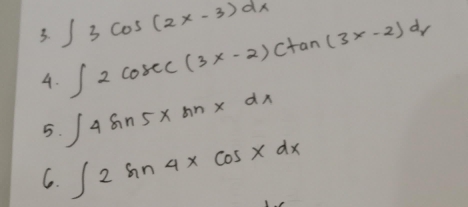 3. ∫ 3 cos (2x - 3) dx
4. ∫ 2 cosec (3x - 2) ctan (3x - 2) dx
5. ∫ 4 sin 5 x sin x dx
6. ∫ 2 sin 4 x cos x dx